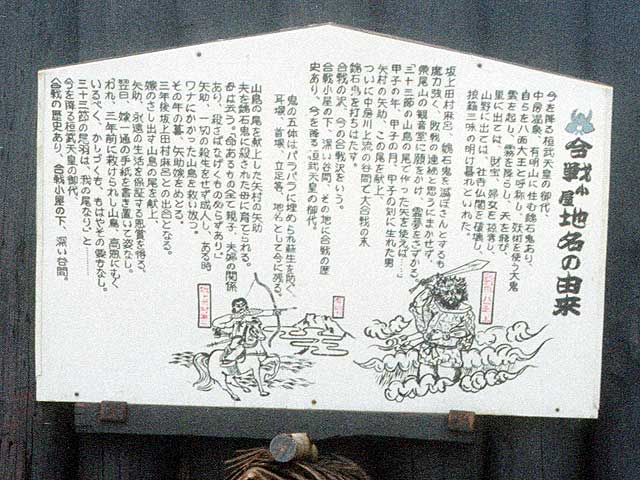 合戦小屋地名の由来
今を降る桓武天皇の御代。
中房温泉、有明山に住む魏石鬼あり、
自らを八面大王と呼称し、妖術を使う大鬼
雲を起し、雲霧を降らし、天を飛び、
里に出ては、財宝、婦女を掠奪し、
山野に出ては、社寺仏閣を破壊し
狼藉三昧の明け暮れといわれた。
坂上田村麻呂、魏石鬼を滅ぼさんとするも
魔力強く、敗戦の連続と思うにまかせず、
栗尾山の観音堂に願をかけ、霊夢をさずかる
「三十三節の山鳥の尾で作った矢を使えば…」
甲子の年、甲子の月、甲子の日、甲子の刻に生れた男
矢村の矢助、この尾を献上
ついに中房川上流の谷間で大合戦の末
魏石鬼を打ちはたす。
合戦の沢、今の合戦沢という。
合戦小屋の下、深い谷間、その地に合戦の歴
史あり、今を降る桓武天皇の御代。
鬼の五体はバラバラに埋められ蘇生を防ぐ
耳塚、首塚、立足等、地名として今に残る。
山鳥の尾を献上した矢村の矢助
夫を魏石鬼に殺された母に育てられる。
母は云う。「命あるもの全て親子、夫婦の関係
あり、殺さばなげくものかならずあり」
矢助、一切の殺生をせず成人し、ある時
ワナにかかった山鳥を救い放つ。
その年の暮、矢助嫁をめとる。
三年後坂上田村麻呂との出合となる。
嫁のさし出す山鳥の尾を献上、
矢助、永遠の生活を保証する恩賞を得る。
翌日、嫁一通の手紙を書き置いて姿なし。
「われ、三年前に救けられし山鳥、高恩にむく
いるべく、かしづくも、もはやその要なし。
三十三節の尾羽は、我の尾なり」と………
今を降る桓武天皇の御代。
合戦の歴史あり、合戦小屋の下、深い谷間。
有明山